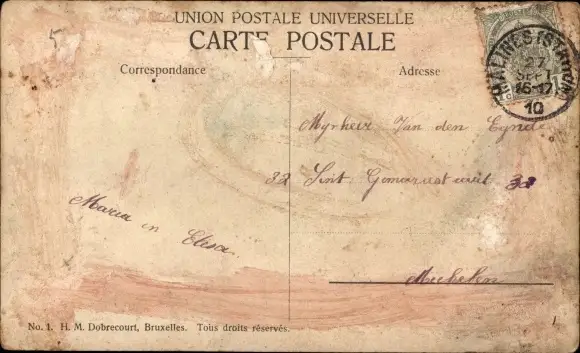 5
UNION POSTALE UNIVERSELLE
CARTE POSTALE
Correspondance
Adresse
MALINES (STATION)
27
SEPT
16-17
10
Mynheer Van den Eynde
32 Sint Gomarustraat 32
Maria en Elisa
Mechelen
No. 1. H. M. Dobrecourt, Bruxelles. Tous droits réservés.